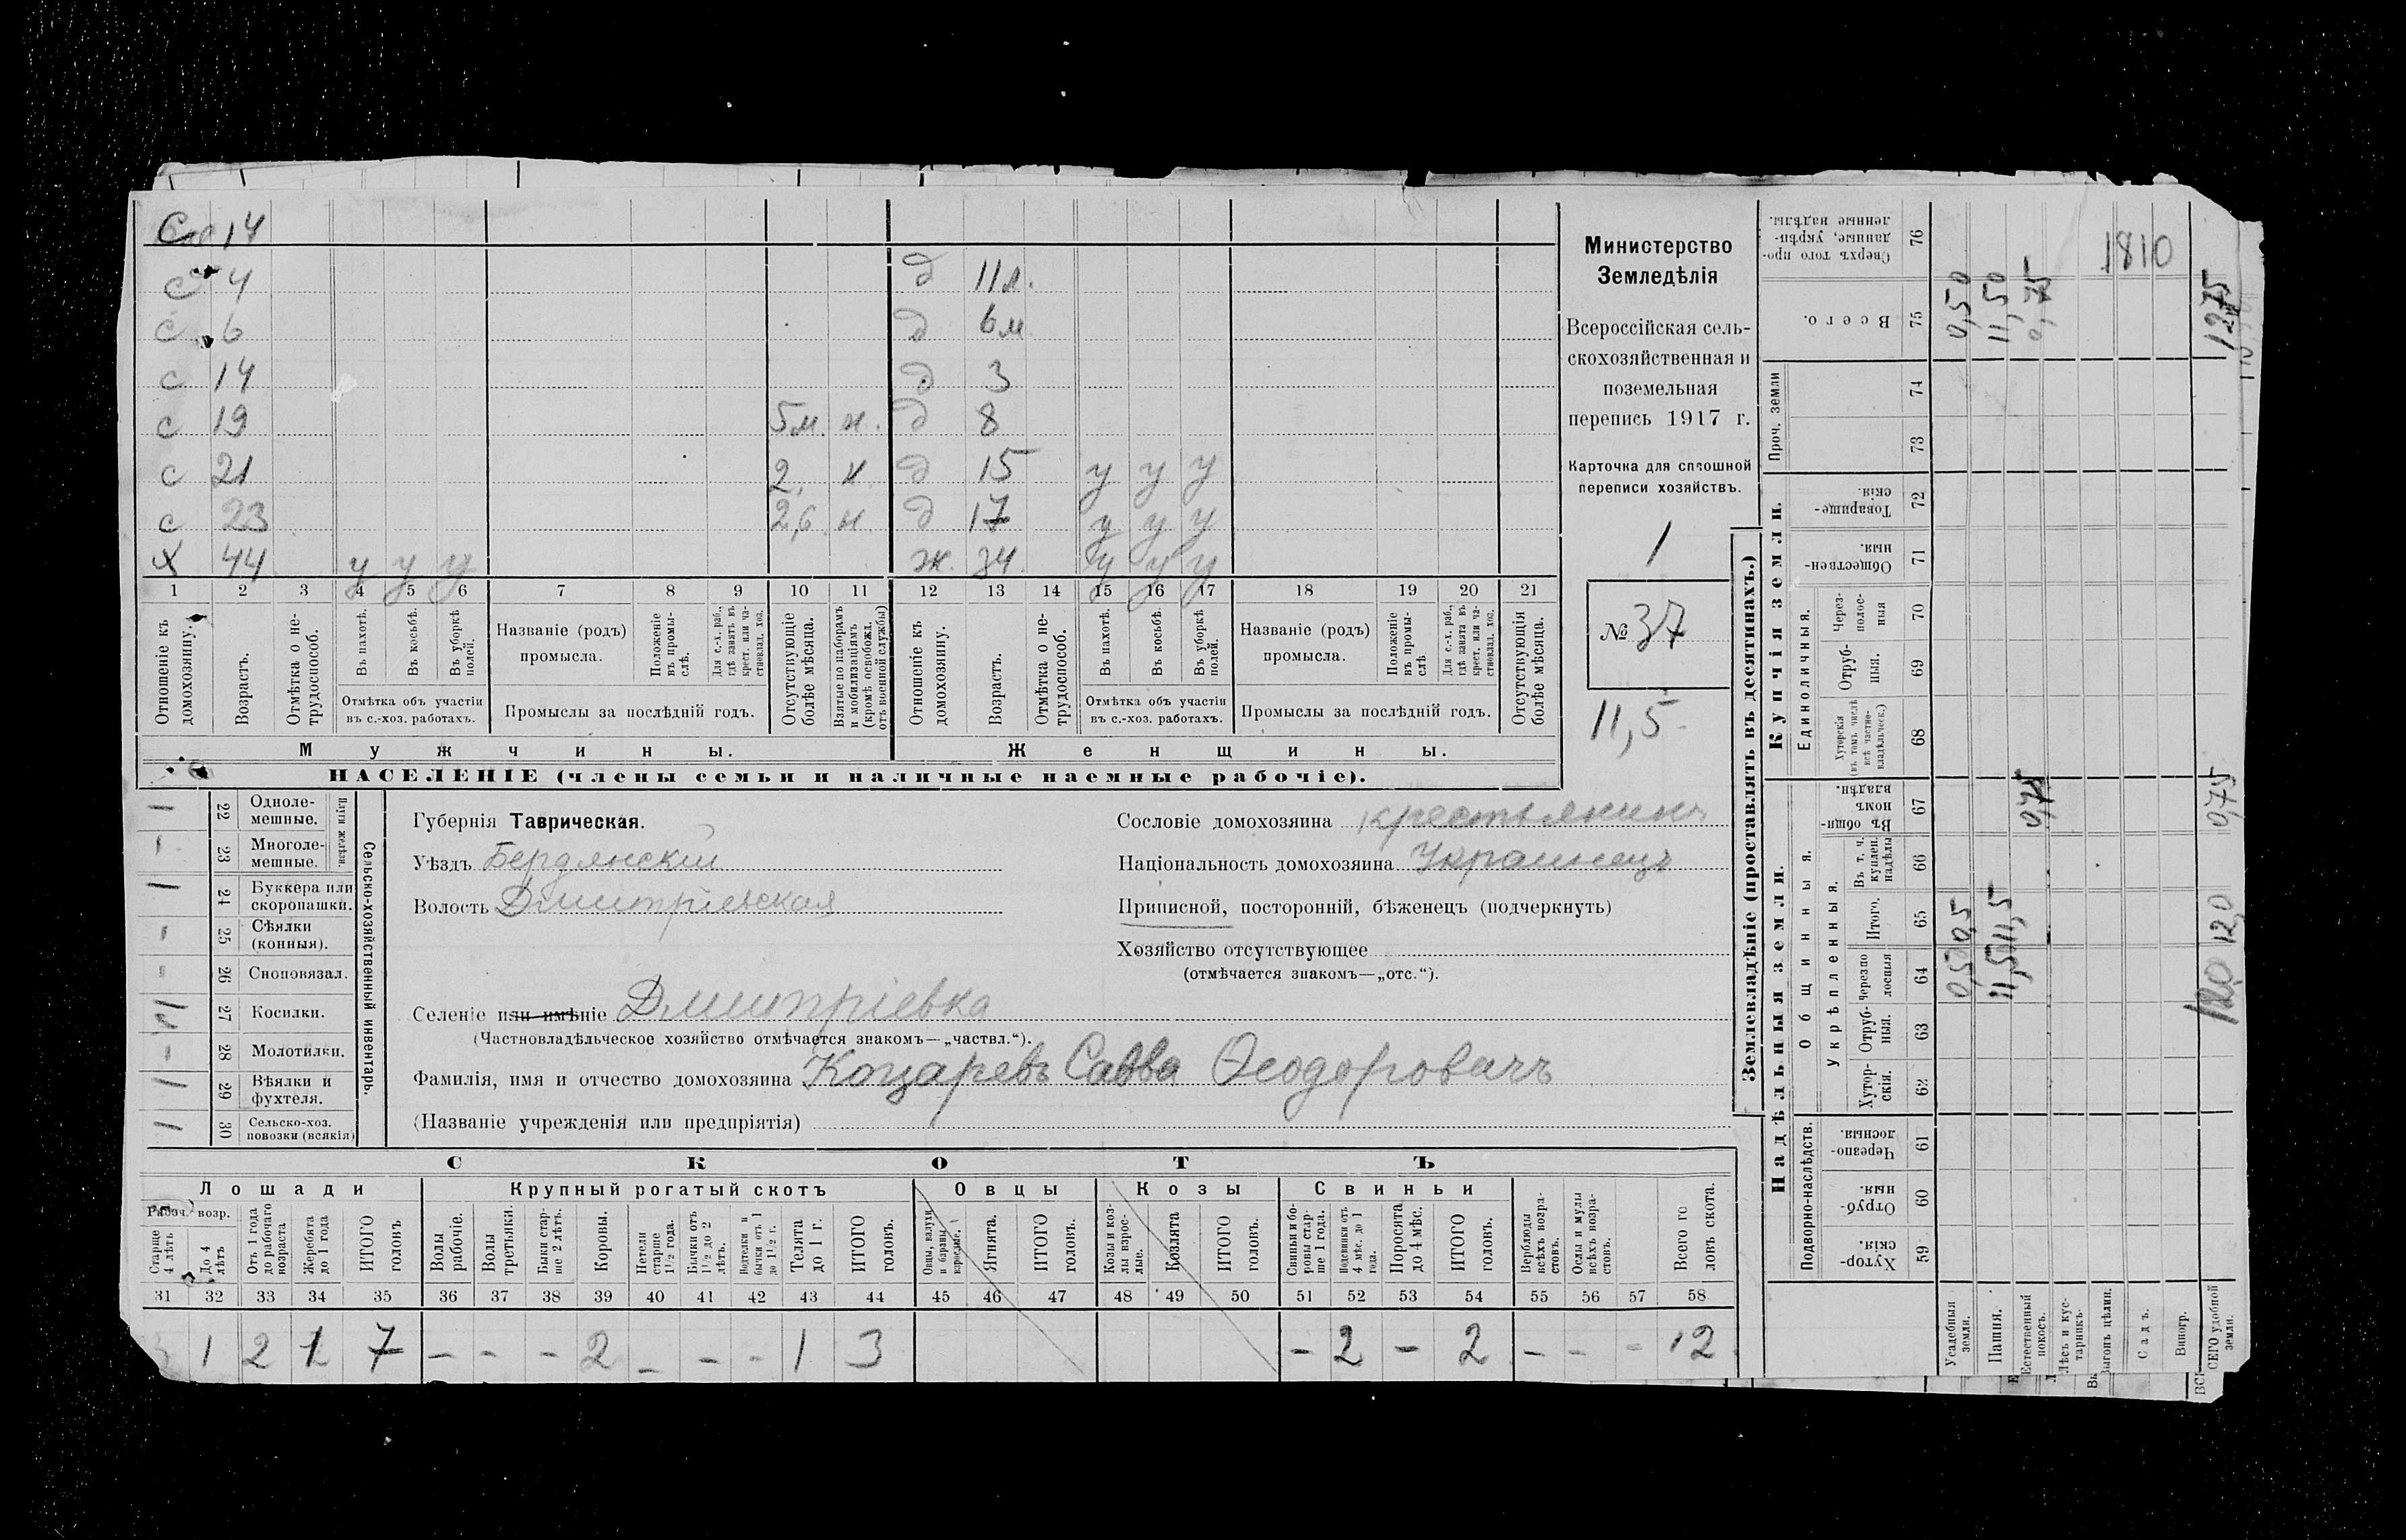 С 14
с 4 д 11 л.
с 6 д 6 м
с 14 д 3
с 19 5 м. н. д 8
с 21 2 н д 15 у у у
с 23 2,6 н д 17 у у у
х 44 у у у ж. 34 у у у
1 2 3 4 5 6 7 8 9 10 11 12 13 14 15 16 17 18 19 20 21
Отношеніе къ домохозяину.
Возрастъ.
Отмѣтка о нетрудоспособ.
Въ пахотѣ.
Въ косьбѣ.
Въ уборкѣ полей.
Отмѣтка объ участіи въ с.-хоз. работахъ.
Названіе (родъ) промысла.
Положеніе въ промыслѣ.
Для с.-х. раб., гдѣ занятъ въ крест. или частновлад. хоз.
Промыслы за послѣдній годъ.
Отсутствующіе болѣе мѣсяца.
Взятые по наборамъ и мобилизаціямъ (кромѣ освобожд. отъ военной службы)
Отношеніе къ домохозяину.
Возрастъ.
Отмѣтка о нетрудоспособ.
Въ пахотѣ.
Въ косьбѣ.
Въ уборкѣ полей.
Отмѣтка объ участіи въ с.-хоз. работахъ.
Названіе (родъ) промысла.
Положеніе въ промыслѣ
Для с.-х. раб., гдѣ занята въ крест. или частновлад. хоз.
Промыслы за послѣдній годъ.
Отсутствующія болѣе мѣсяца.
Мужчины. Женщины.
НАСЕЛЕНІЕ (члены семьи и наличные наемные рабочіе).
Министерство
Земледѣлія
Всероссійская сель-
скохозяйственная и
поземельная
перепись 1917 г.
Карточка для сплошной
переписи хозяйствъ.
1
№ 37
11,5
1 22 Однолемешные.
- 23 Многолемешные.
Плуги желѣзн.
1 24 Буккера или скоропашки.
- 25 Сѣялки (конныя).
- 26 Сноповязал.
27 Косилки.
- 28 Молотилки.
1 29 Вѣялки и фухтеля.
1 30 Сельско-хоз. повозки (всякія)
Сельско-хозяйственный инвентарь.
Губернія Таврическая.
Уѣздъ Бердянскій
Волость Дмитріевская
Сословіе домохозяина крестьянинъ
Національность домохозяина Украинецъ
Приписной, посторонній, бѣженецъ (подчеркнуть)
Хозяйство отсутствующее
(отмѣчается знакомъ—„отс.“).
Селеніе или имѣніе Дмитріевка
(Частновладѣльческое хозяйство отмѣчается знакомъ—„частвл.“).
Фамилія, имя и отчество домохозяина Коцаревъ Савва Ѳеодоровичъ
(Названіе учрежденія или предпріятія)
СКОТЪ
Лошади Крупный рогатый скотъ Овцы Козы Свиньи
Рабоч. возр.
Старше 4 лѣтъ
До 4 лѣтъ
Отъ 1 года до рабочаго возраста
Жеребята до 1 года
ИТОГО головъ
Волы рабочіе.
Волы третьяки.
Быки старше 2 лѣтъ.
Коровы.
Нетели старше 1½ года.
Бычки отъ 1½ до 2 лѣтъ.
Нетелки и бычки отъ 1 до 1½ г.
Телята до 1 г.
ИТОГО головъ.
Овцы, валухи и бараны взрослые.
Ягнята.
ИТОГО головъ.
Козы и козлы взрослые.
Козлята
ИТОГО головъ.
Свиньи и боровы старше 1 года.
Подсвинки отъ 4 мѣс. до 1 года.
Поросята до 4 мѣс.
ИТОГО головъ.
Верблюды всѣхъ возрастовъ.
Ослы и мулы всѣхъ возрастовъ.
Всего головъ скота.
31 32 33 34 35 36 37 38 39 40 41 42 43 44 45 46 47 48 49 50 51 52 53 54 55 56 57 58
3 1 2 1 7 - - - 2 - - - 1 3 - 2 - 2 - - - 12
Землевладѣніе (проставлять въ десятинахъ.)
Надѣльныя земли. Купчія земли. Проч. земли
Подворно-наслѣдств.
Общинныя.
Укрѣпленныя.
Единоличныя.
59 Хуторскія.
60 Отрубныя.
61 Черезполосныя.
62 Хуторскія.
63 Отрубныя.
64 Черезполосныя
65 Итого.
66 Въ т. ч. куплен. надѣлы
67 Въ общинномъ владѣн.
68 Хуторскія (въ томъ числѣ всѣ частновладѣльческ.)
69 Отрубныя.
70 Черезполосныя
71 Общественныя.
72 Товарищескія.
73
74
75 Всего.
76 Сверхъ того проданные, укрѣпленные надѣлы.
Усадебныя земли. 0,5 0,5 0,50
Пашня. 11,50 11,5 11,50
Естественный покосъ. 0,75 0,75
Лѣсъ и кустарникъ.
Выгонъ цѣлин.
Садъ.
Виногр.
ВСЕГО удобной земли. 12,0 12,0 0,75 12,75
1810